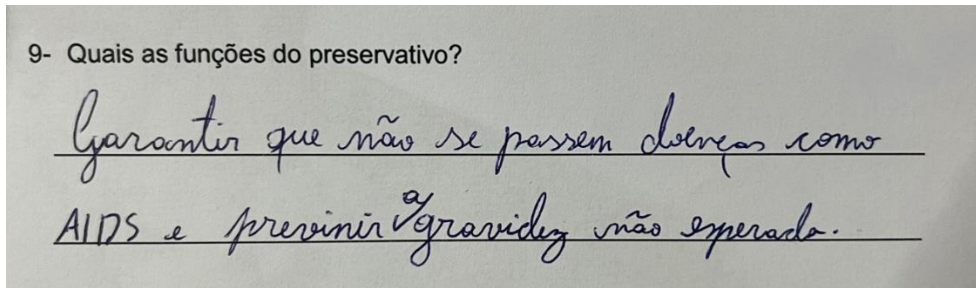 9- Quais as funções do preservativo?
Garantir que não se passem doenças como
AIDS e previnir a gravidez não esperada.